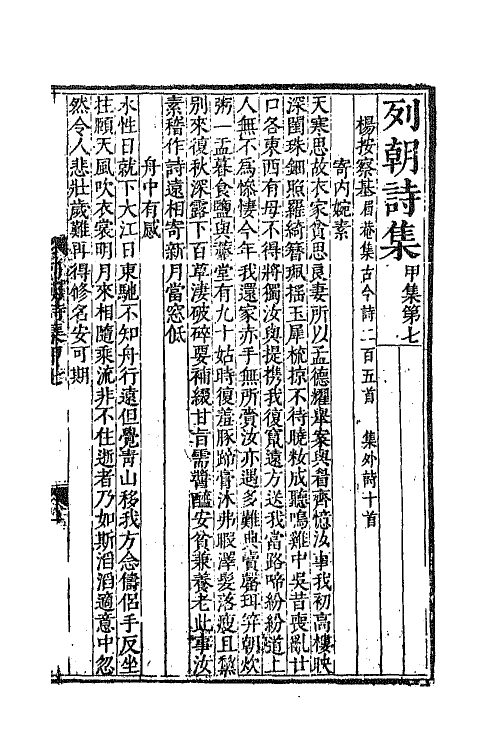 列朝詩集 甲集第七
楊按察基眉菴集古今詩二百五首 集外詩十首
寄內婉素
天寒思故衣家貧思良妻所以孟德耀舉案與眉齊憶汝事我初高樓映
深閨珠鈿照羅綺簪珮搖玉犀梳掠不待曉妝成聽鳴雞中吳昔喪亂廿
口各東西有母不得將獨汝與提携我復竄遠方送我當路啼紛紛道上
人無不為慘悽今年我還家赤手無所賫汝亦遇多難典賣罄珥笄朝炊
粥一盂暮食鹽與虀堂有九十姑時復羞豚蹄膏沐弗暇澤髮落瘦且黧
別來復秋深露下百草淒破碎要補綴甘旨需醬醯安貧兼養老此事汝
素稽作詩遠相寄新月當窓低
舟中有感
水性日就下大江日東馳不知舟行遠但覺青山移我方念儔侶手反坐
拄頤天風吹衣裳明月來相隨乘流非不住逝者乃如斯滔滔適意中忽
然令人悲壯歲難再得修名安可期